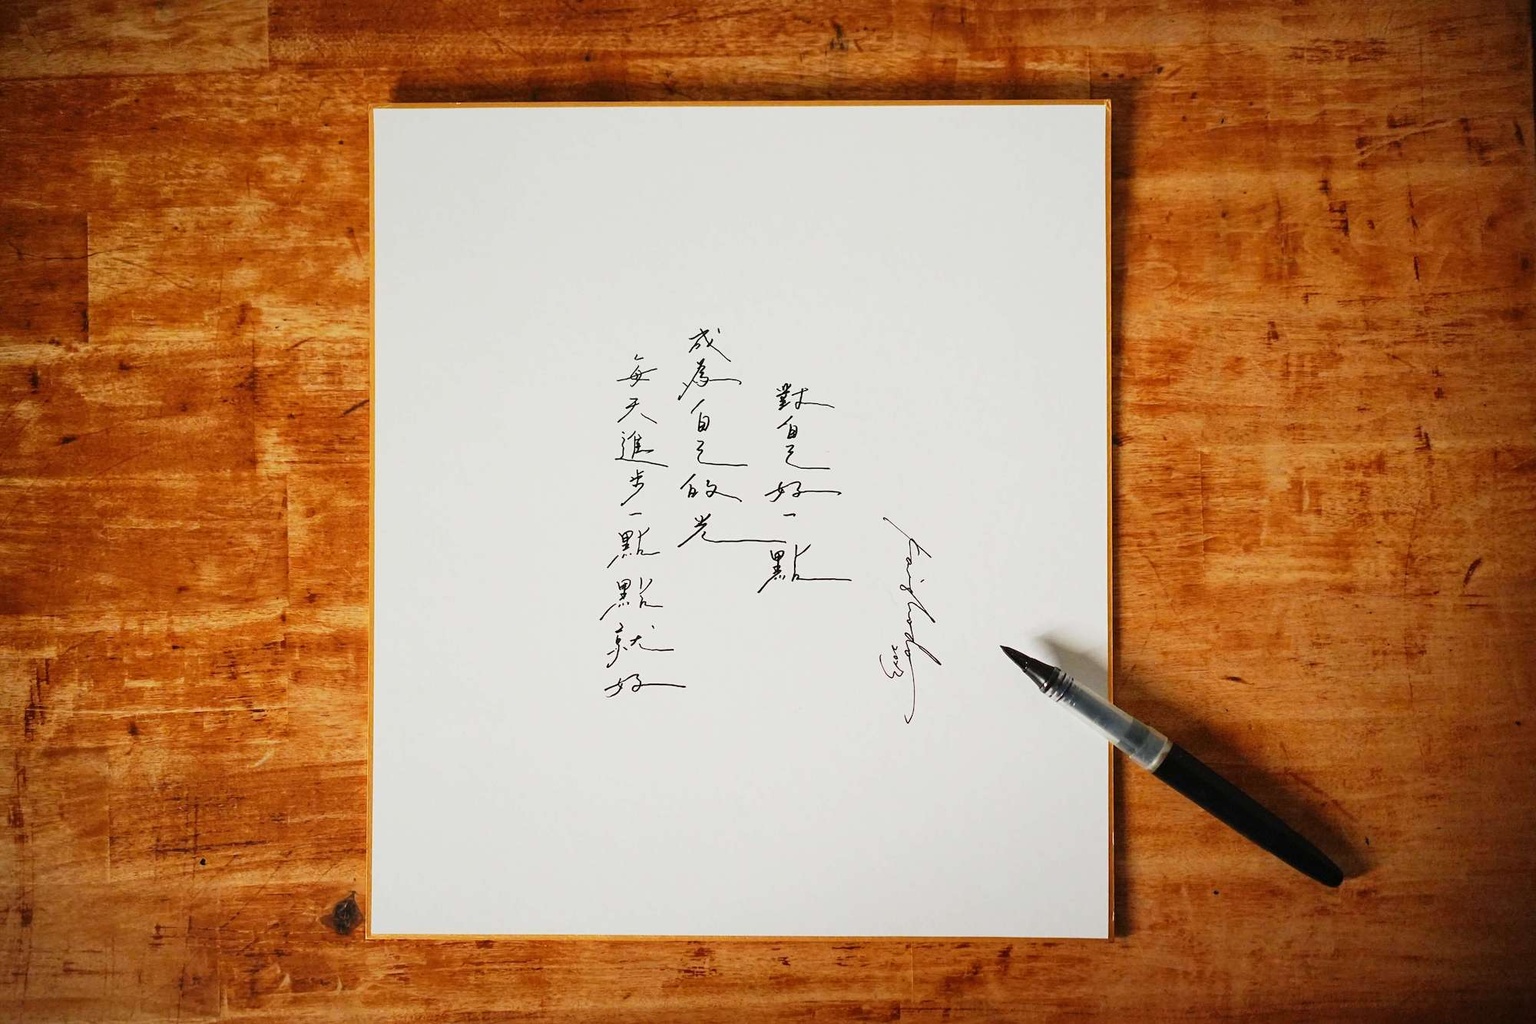 對自己好一點
成為自己的光
每天進步一點點就好
2023